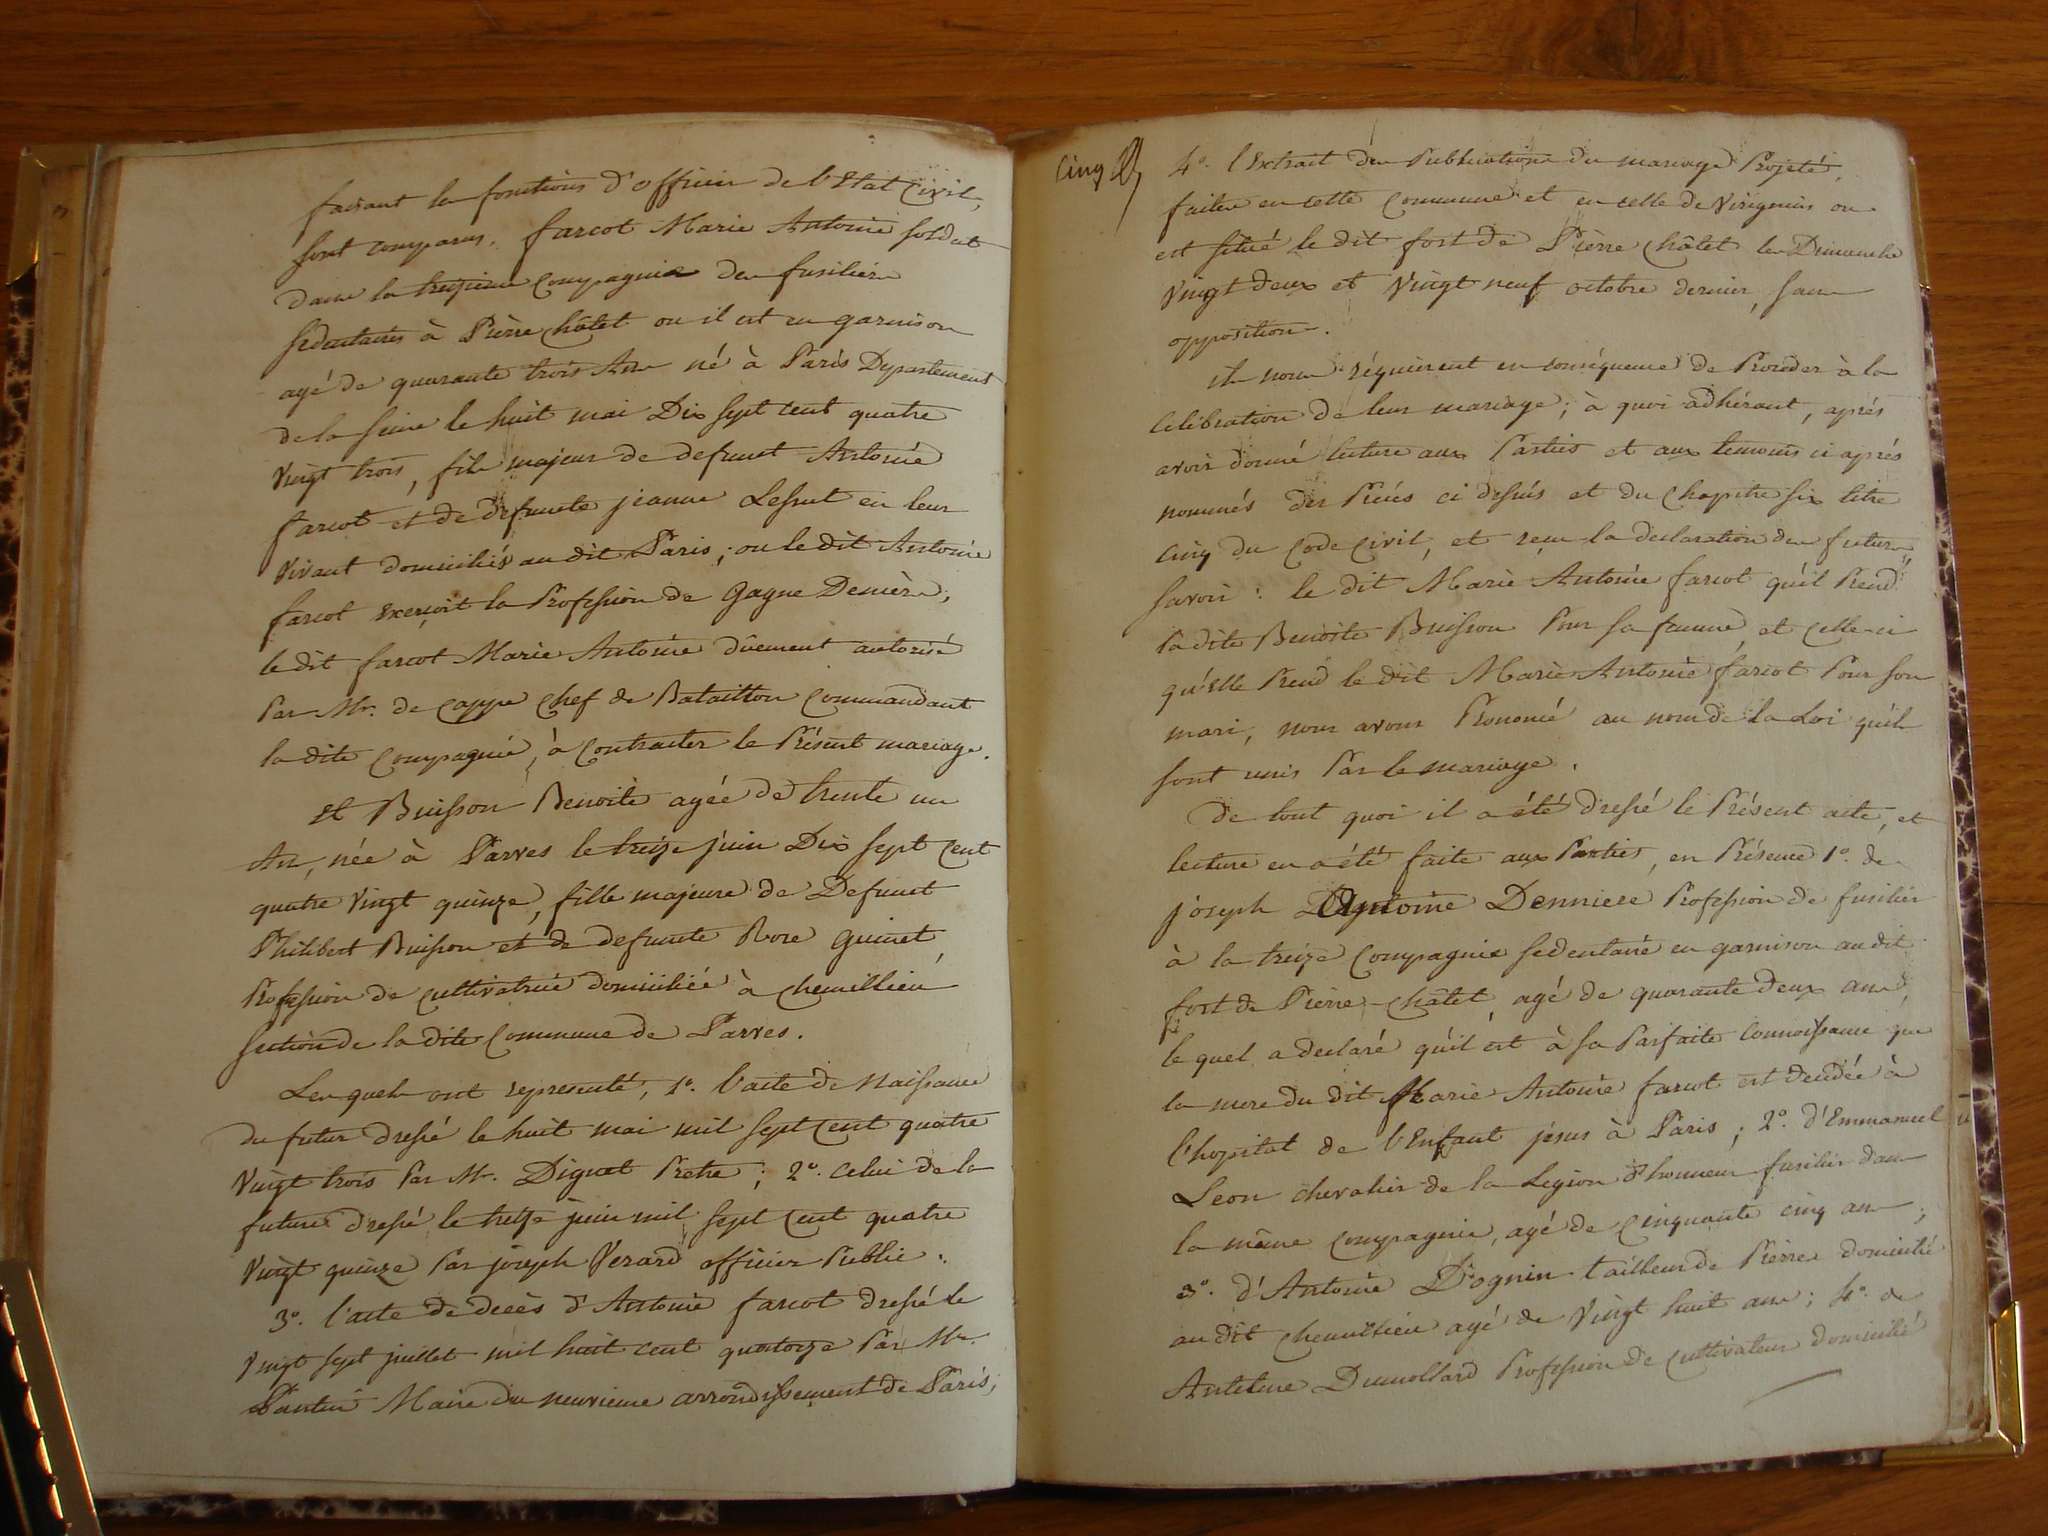 faisant les fonctions d'officier de l'Etat Civil,
sont comparus, farcot Marie Antoine soldat
dans la treizieme compagnie des fusiliers
sedentaires à Pierre Châtel ou il est en garnison
agé de quarante trois Ans né à Paris Departement
de la seine le huit mai Dix sept cent quatre
Vingt trois, fils majeur de defunct Antoine
farcot et de defuncte jeanne Lesnut en leur
Vivant domiciliés au dit Paris; ou le dit Antoine
farcot exerçoit la Profession de Gagne Deniers,
le dit farcot Marie Antoine dûement autorisé
Par Mr. de Cappe Chef de Bataillon Commandant
la dite Compagnie, à Contracter le Présent mariage.
Et Buisson Benoite agée de trente un
An, née à Parves le treize juin Dix sept cent
quatre Vingt quinze, fille majeure de Defunct
Philibert Buisson et de defuncte Rose Guinet,
Profession de cultivatrice domiciliée à Chemillieu
section de la dite Commune de Parves.
Lesquels ont representé, 1º. l'acte de Naissance
du futur dressé le huit mai mil sept cent quatre
Vingt trois Par Mr. Diguet Pretre; 2º. celui de la
future dressé le treize juin mil sept cent quatre
Vingt quinze Par joseph Verard officier Public.
3º. l'acte de decès d'Antoine farcot dressé le
Vingt sept juillet mil huit cent quatorze Par Mr.
Maire du neuvieme arrondissement de Paris;
Cinq
4º. l'Extrait des Publications du mariage Projeté,
faites en cette Commune et en celle de Virignins ou
est situé le dit fort de Pièrre Châtel les Dimanche
Vingt deux et Vingt neuf octobre dernier, sans
opposition.
ils nous réquièrent en conséquence de Proceder à la
célébration de leur mariage; à quoi adhérant, après
avoir donné lecture aux Parties et aux temoins ci après
nommés des Pièces ci dessus et du Chapitre six titre
cinq du Code Civil, et reçu la declaration des futurs,
savoir: le dit Marie Antoine farcot qu'il Prend
la dite Benoite Buisson Pour sa femme, et celle-ci
qu'Elle Prend le dit Marie Antoine farcot Pour son
mari, nous avons Prononcé au nom de la Loi qu'ils
sont unis Par le mariage.
De tout quoi il a été dressé le Présent acte, et
lecture en a été faite aux Parties, en Présence 1º. de
joseph Antoine Denniere Profession de fusilier
à la treize Compagnie sedentaire en garnison au dit
fort de Pièrre-Châtel, agé de quarante deux ans,
le quel a declaré qu'il est à sa Parfaite connoissance que
la mere du dit Marie Antoine farcot est decédée à
l'hopital de l'Enfant jésus à Paris; 2º. d'Emmanuel
Leon chevalier de la Legion d'honneur fusilier dans
la même compagnie, agé de Cinquante cinq ans;
3º. d'Antoine Dognin tailleur de Pièrre domicilié
au dit Chemillieu agé de Vingt huit ans; 4º. de
Antelme Dumollard Profession de cultivateur domicilié